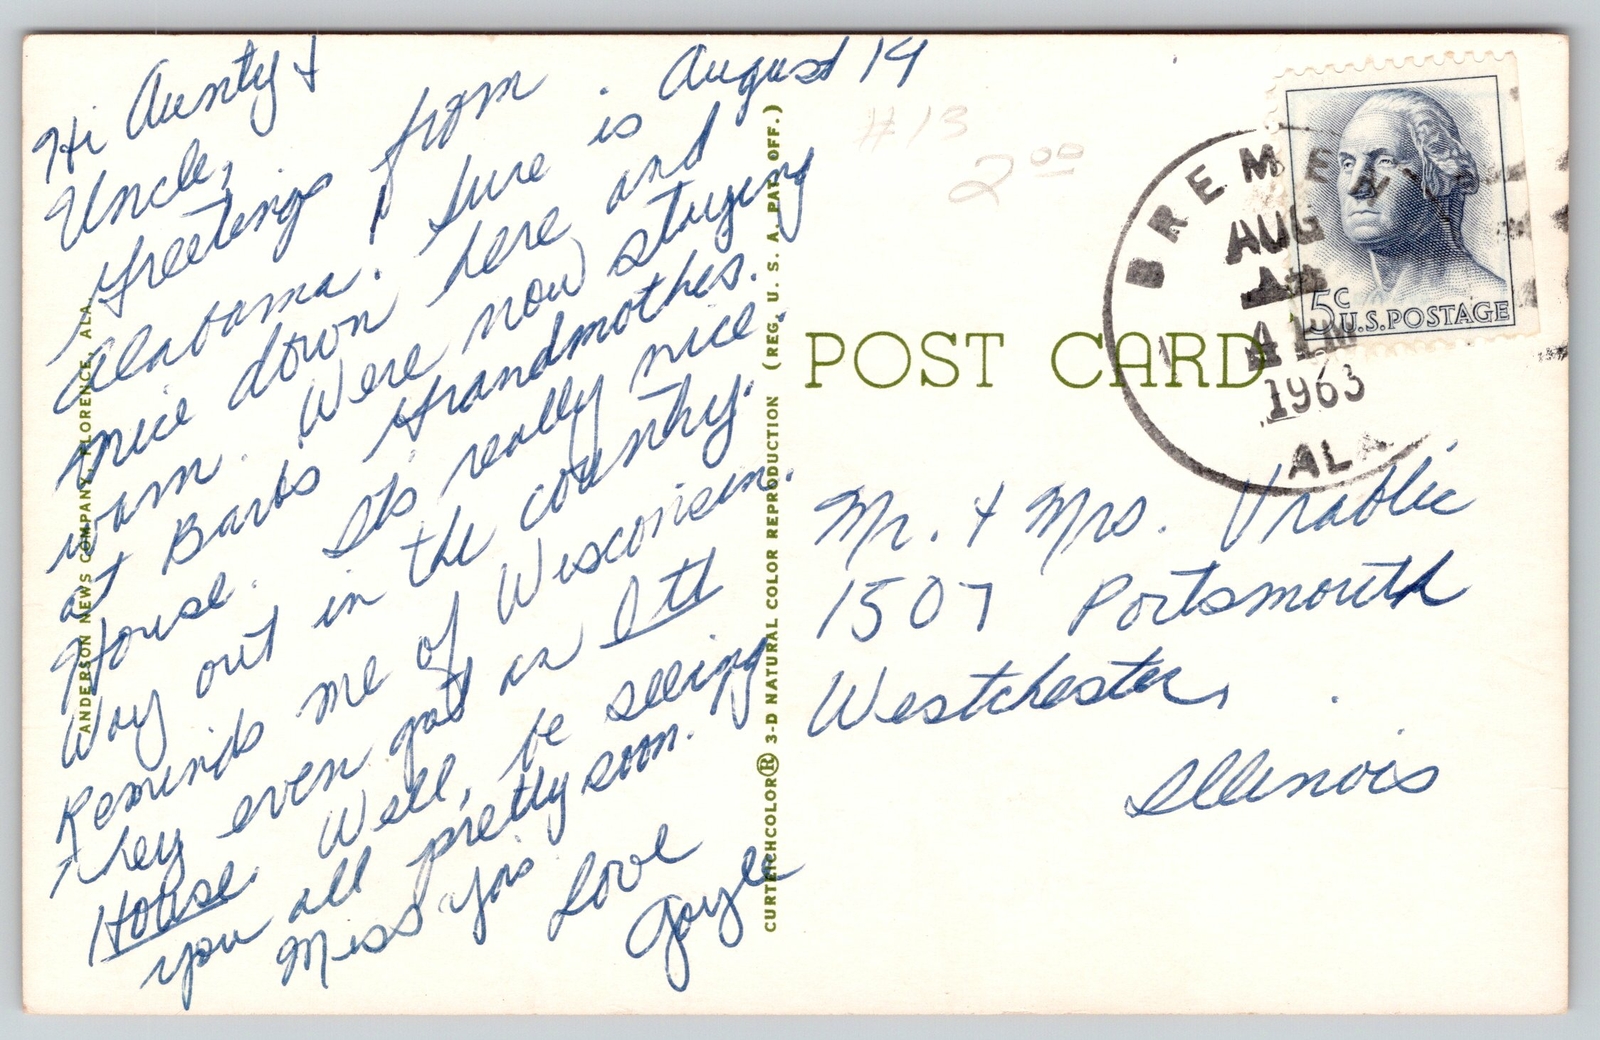 August 14
Hi Aunty &
Uncle,
Greetings from
Alabama. Sure is
nice down here and
warm. Were now staying
at Barbs Grandmothes.
House. Its really nice.
Way out in the country.
Reminds me of Wisconsin.
They even got an Out
House. Well, be seeing
you all pretty soon.
Miss you
Love
Gayle
ANDERSON NEWS COMPANY, FLORENCE, ALA.
CURTEICHCOLOR® 3-D NATURAL COLOR REPRODUCTION (REG. U. S. A. PAT. OFF.)
#13
2 00
POST CARD
BREMEN
AUG
1963
ALA
5c
U.S.POSTAGE
Mr. & Mrs. Vrablic
1507 Portsmouth
Westchester,
Illinois